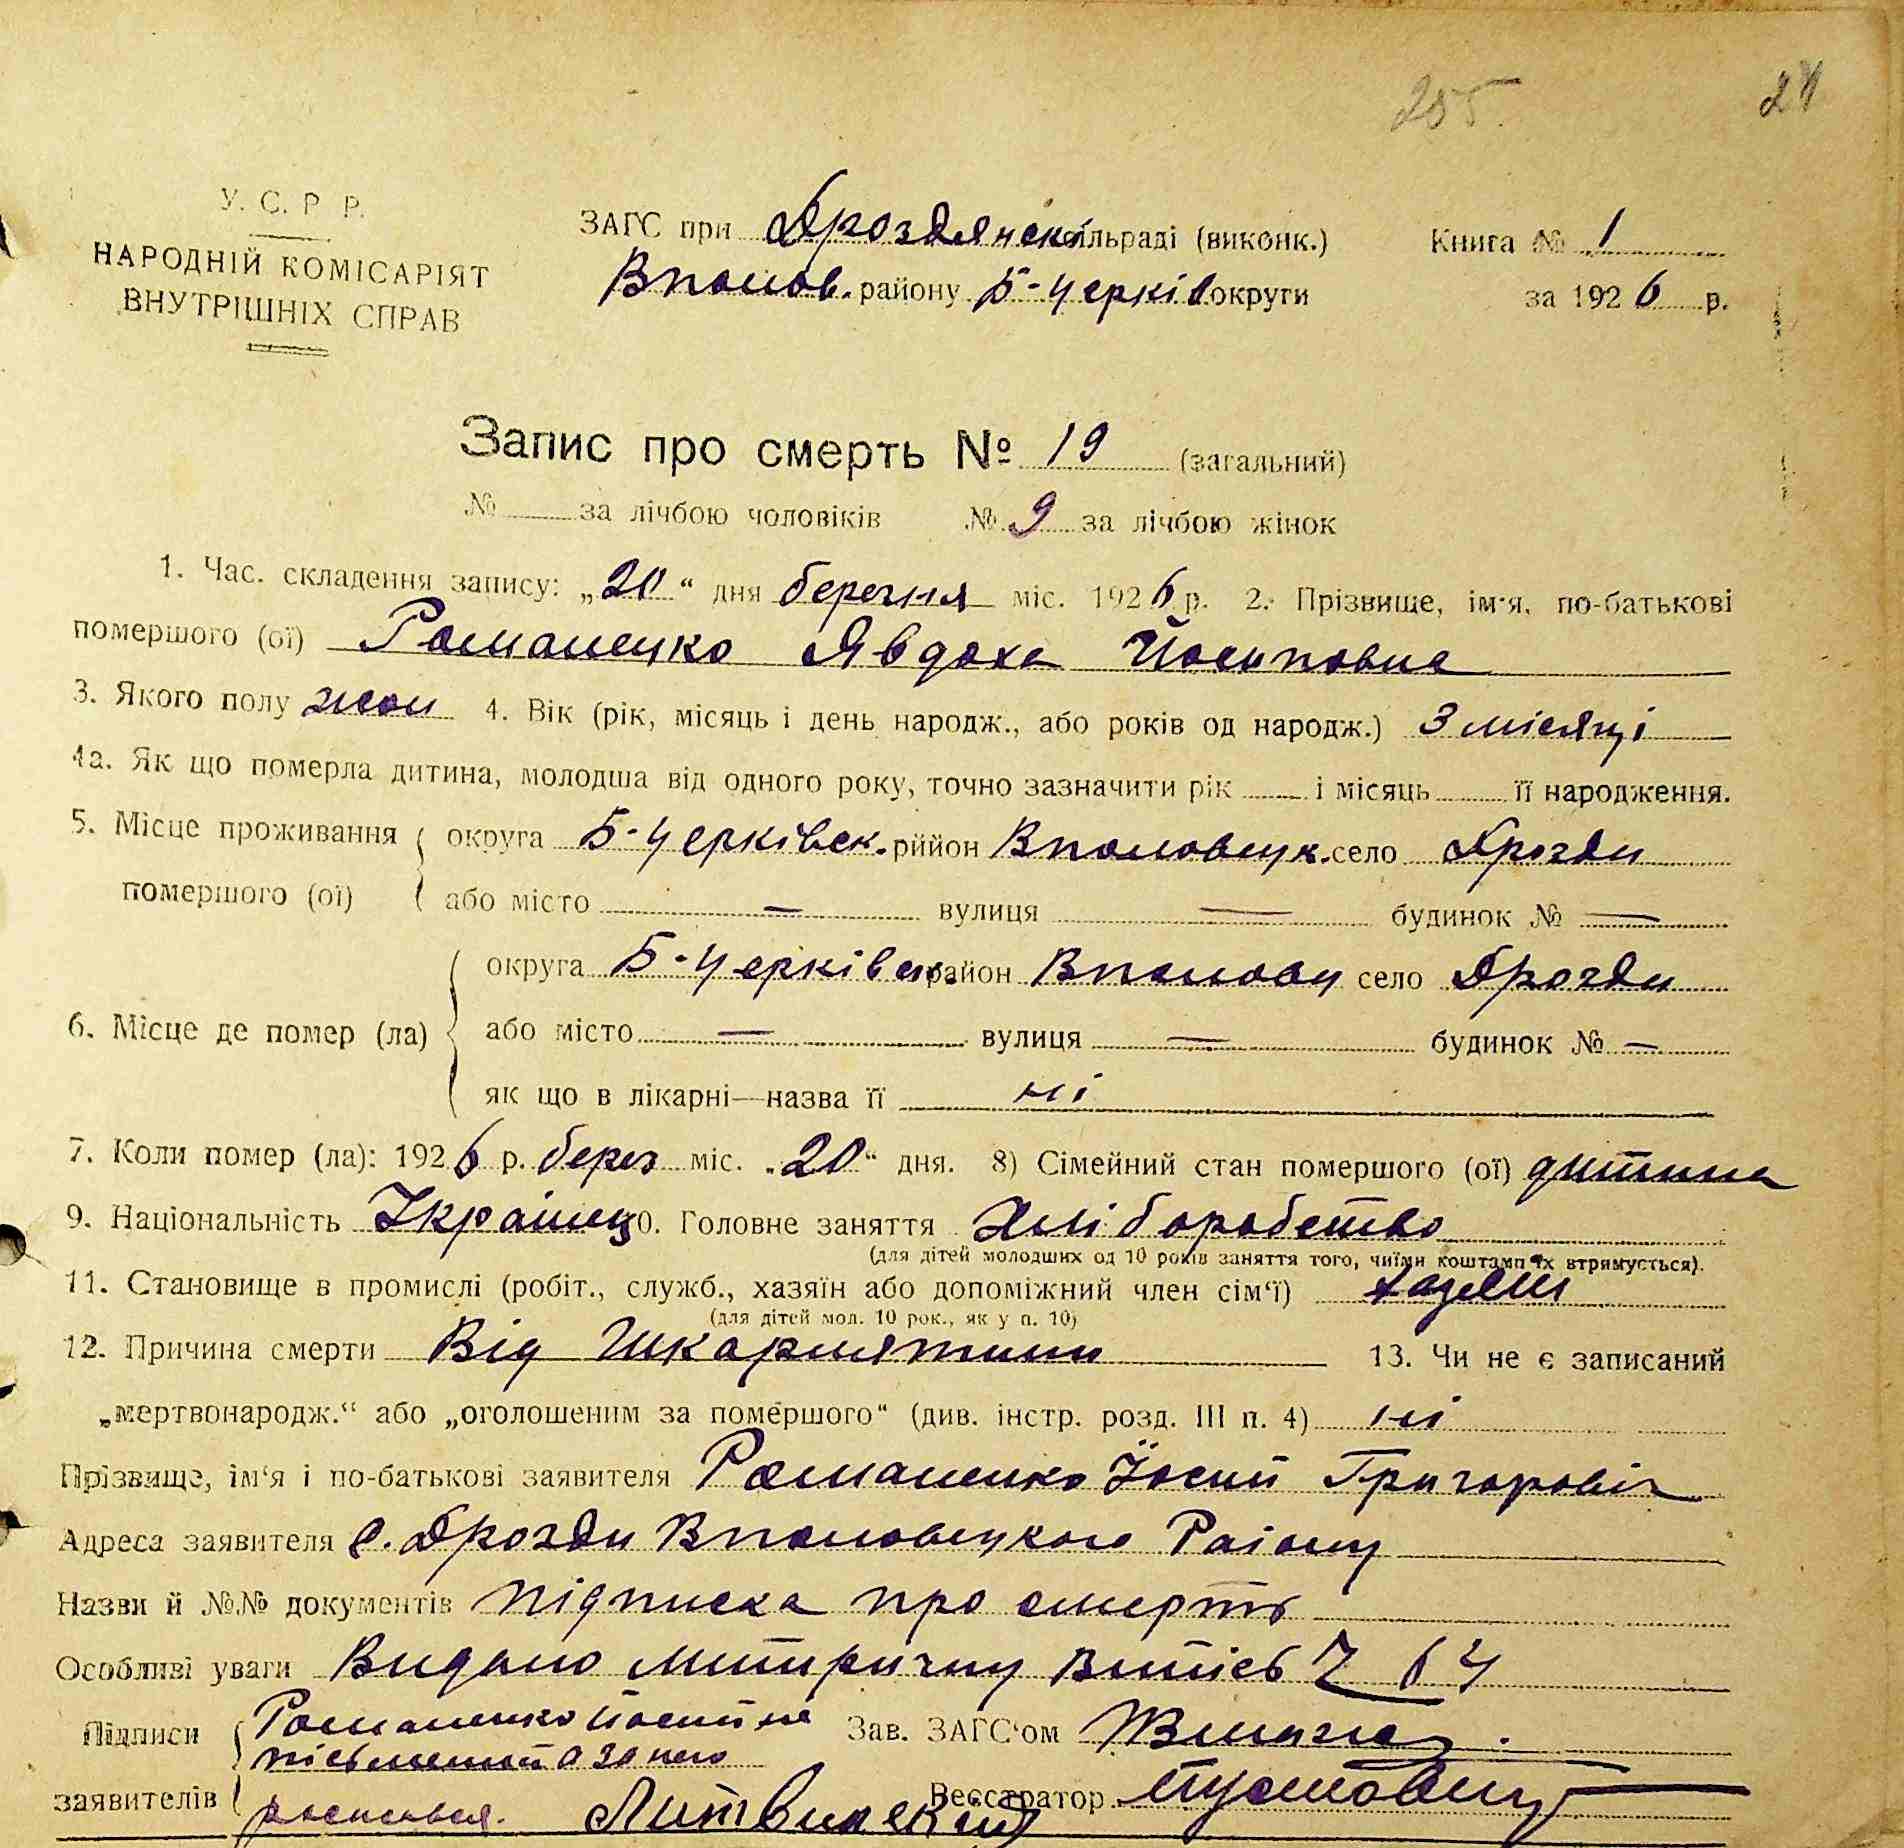 255
У. С. Р Р.
НАРОДНІЙ КОМІСАРІЯТ
ВНУТРІШНІХ СПРАВ
ЗАГС при Дроздянскій сільраді (виконк.) Книга № 1
Вполов. району Б-Церків округи за 1926 р.
Запис про смерть № 19 (загальний)
№ за лічбою чоловіків № 9 за лічбою жінок
1. Час. складення запису: „20“ дня березня міс. 1926 р. 2. Прізвище, ім'я, по-батькові
помершого (ої) Романенко Явдоха Йосиповна
3. Якого полу жон 4. Вік (рік, місяць і день народж., або років од народж.) 3 місяці
4а. Як що померла дитина, молодша від одного року, точно зазначити рік і місяць її народження.
5. Місце проживання округа Б-Церківск. рййон Вполовецк. село Дрозди
помершого (ої) або місто — вулиця — будинок № —
округа Б-Церківск район Вполовец село Дрозди
6. Місце де помер (ла) або місто — вулиця — будинок № —
як що в лікарні—назва її ні
7. Коли помер (ла): 1926 р. берез міс. „20“ дня. 8) Сімейний стан помершого (ої) дитина
9. Національність Українец 10. Головне заняття Хліборобство
(для дітей молодших од 10 років заняття того, чиїми коштами їх втримується).
11. Становище в промислі (робіт., служб., хазяїн або допоміжний член сім'ї) хазяїн
(для дітей мол. 10 рок., як у п. 10)
12. Причина смерти Від Шкарлятини 13. Чи не є записаний
„мертвонародж.“ або „оголошеним за помершого“ (див. інстр. розд. III п. 4) ні
Прізвище, ім'я і по-батькові заявителя Романенко Йосип Григоровіч
Адреса заявителя с. Дрозди Вполовецкого Раіону
Назви й №№ документів підписка про смерть
Особливі уваги Видано митричну витісь 64
Підписи Романенко Йосип не Зав. ЗАГС'ом
письменний а за него
заявителів роспсився. Литвинский Реєстратор